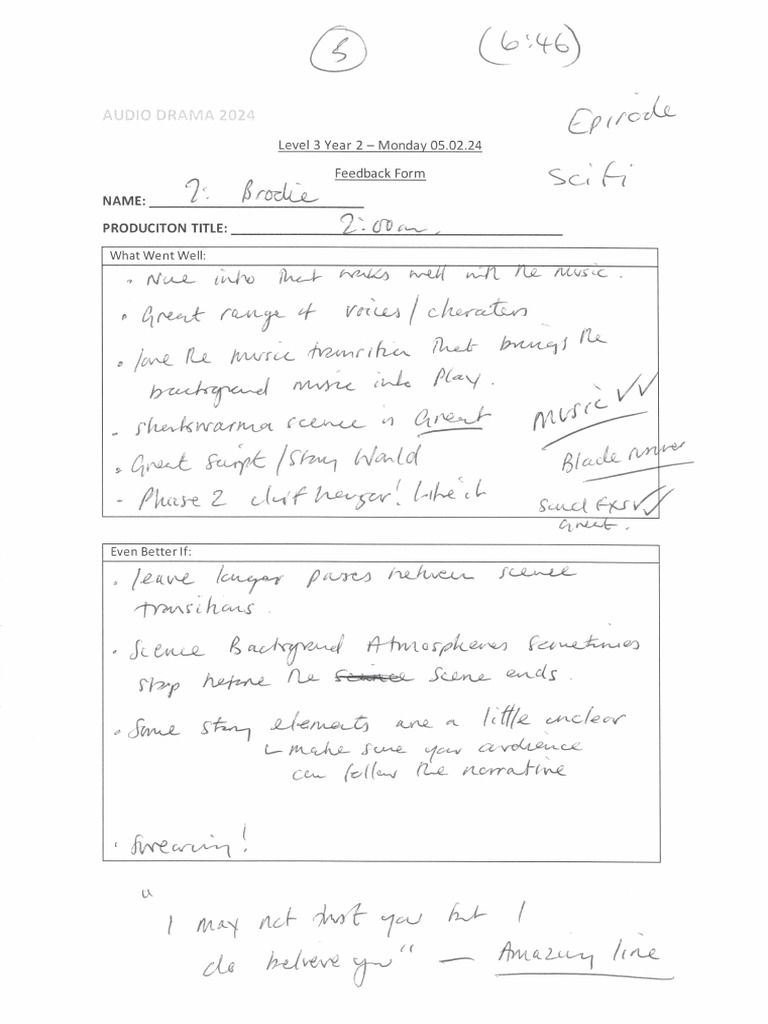 5 (6:46)
AUDIO DRAMA 2024
Episode
Level 3 Year 2 – Monday 05.02.24
Sci Fi
Feedback Form
NAME: 2: Brodie
PRODUCITON TITLE: 2:00am.
What Went Well:
• Nice intro that works well with the music.
• Great range of voices/charaters
• love the music transition that brings the
background music into play.
- scence is Great
Music ✓✓
• Great script/story World
Blade runner
- Phase 2 clif hanger! like it
Sound FXs ✓✓
Great.
Even Better If:
• leave longer pauses between scence
transitions.
• Scence Background Atmospheres sometimes
stop before the scene ends.
• Some story elements are a little unclear
↳ make sure your audience
can follow the narrative
• Swearing!
"I may not trust you but I
do believe you" — Amazing line